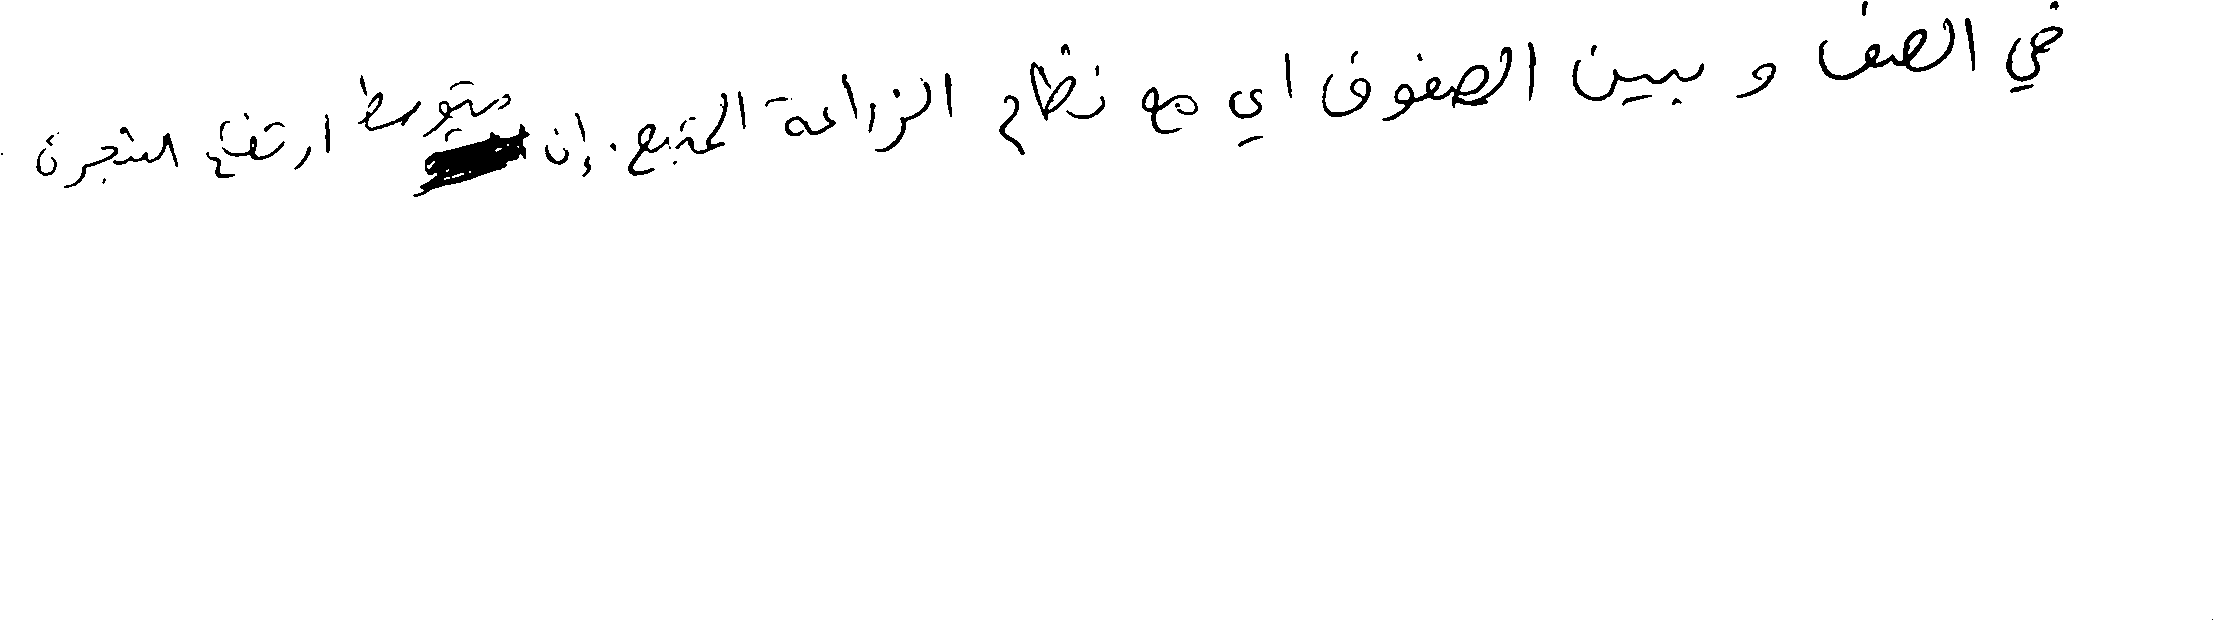 في الصف و بين الصفوف اي مع نظام الزراعة المتبع. إن متوسط ارتفاع الشجرة